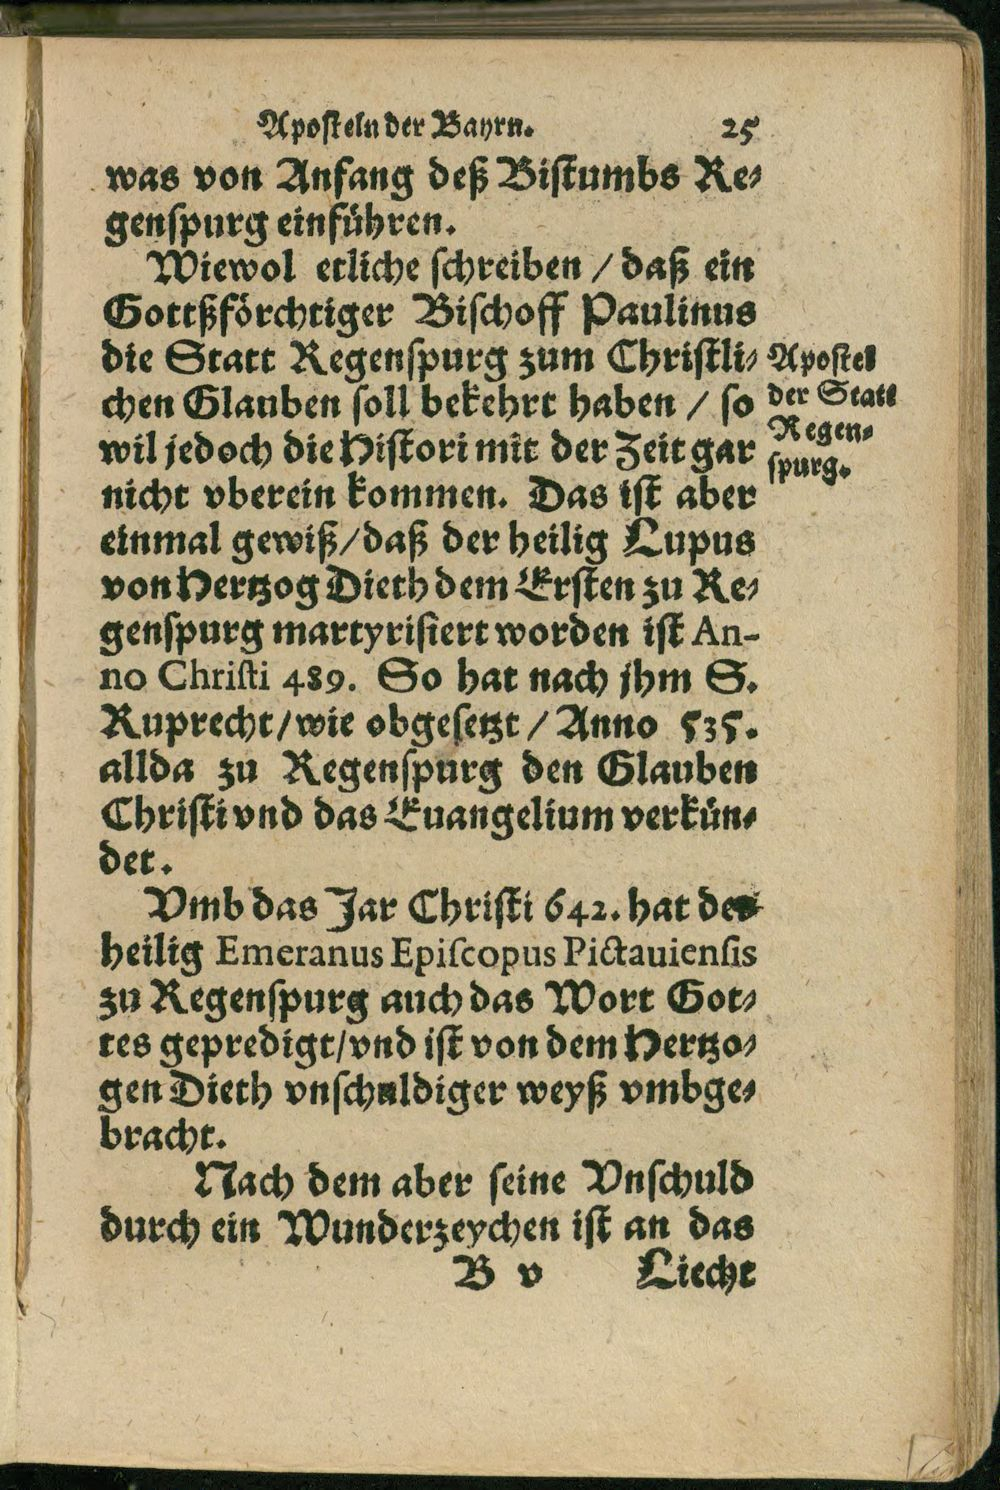 Aposteln der Bayrn. 25
was von Anfang deß Bistumbs Re⸗
genspurg einführen.
Wiewol etliche schreiben / daß ein
Gottßförchtiger Bischoff Paulinus
die Statt Regenspurg zum Christli⸗
chen Glauben soll bekehrt haben / so
wil jedoch die Histori mit der Zeit gar
nicht vberein kommen. Das ist aber
einmal gewiß/daß der heilig Lupus
von Hertzog Dieth dem Ersten zu Re⸗
genspurg martyrisiert worden ist An-
no Christi 489. So hat nach jhm S.
Ruprecht/wie obgesetzt / Anno 535.
allda zu Regenspurg den Glauben
Christi vnd das Euangelium verkün⸗
det.
Vmb das Jar Christi 642. hat der
heilig Emeranus Episcopus Pictauiensis
zu Regenspurg auch das Wort Got⸗
tes gepredigt/vnd ist von dem Hertzo⸗
gen Dieth vnschuldiger weyß vmbge⸗
bracht.
Nach dem aber seine Vnschuld
durch ein Wunderzeychen ist an das
B v Liecht
Apostel
der Statt
Regen⸗
spurg.